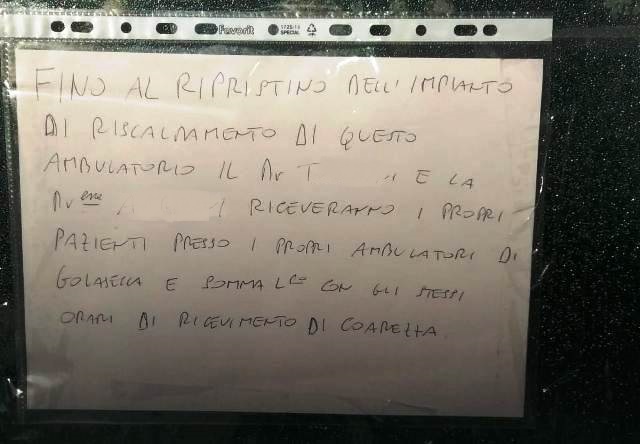 Favorit
1725-13
SPECIAL
FINO AL RIPRISTINO DELL'IMPIANTO
DI RISCALDAMENTO DI QUESTO
AMBULATORIO IL Dr T E LA
Dr esse RICEVERANNO I PROPRI
PAZIENTI PRESSO I PROPRI AMBULATORI DI
GOLASECCA E SOMMA L.do CON GLI STESSI
ORARI DI RICEVIMENTO DI COAREZZA